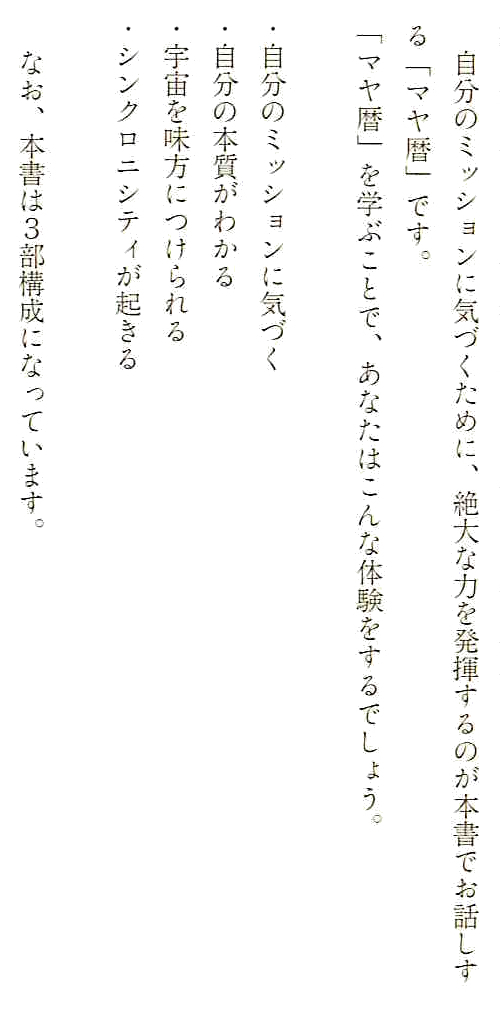 自分のミッションに気づくために、絶大な力を発揮するのが本書でお話しす
る「マヤ暦」です。
「マヤ暦」を学ぶことで、あなたはこんな体験をするでしょう。
・自分のミッションに気づく
・自分の本質がわかる
・宇宙を味方につけられる
・シンクロニシティが起きる
なお、本書は３部構成になっています。